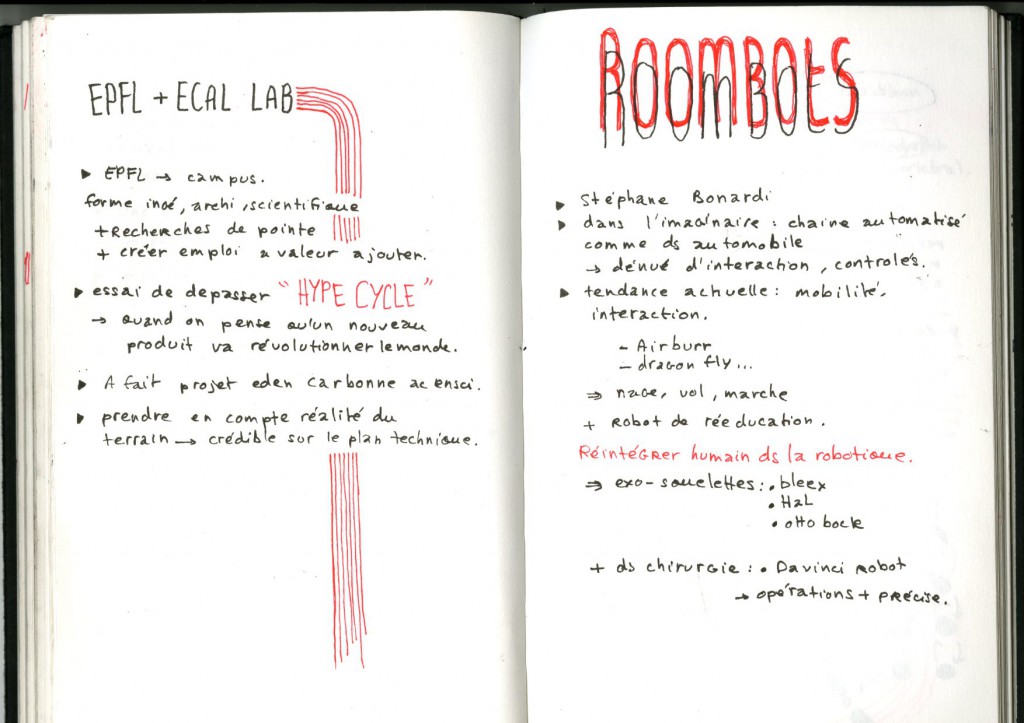 EPFL + ECAL LAB
▸ EPFL → campus.
forme iné, archi, scientifique
+ Recherches de pointe
+ créer emploi a valeur ajouter.
▸ essai de depasser "HYPE CYCLE"
→ quand on pense qu'un nouveau
produit va révolutionner le monde.
▸ A fait projet eden carbonne ac ensci.
▸ prendre en compte réalité du
terrain → crédible sur le plan technique.
ROOMBOTS
▸ Stéphane Bonardi
▸ dans l'imaginaire : chaine automatisé
comme ds automobile
→ dénué d'interaction, controlés.
▸ tendance actuelle : mobilité,
interaction.
- Airburr
- dragon fly...
⇒ nage, vol, marche
+ Robot de rééducation.
Réintégrer humain ds la robotique.
⇒ exo-squelettes : • bleex
• Hal
• otto bock
+ ds chirurgie : • Davinci Robot
→ opérations + précise.